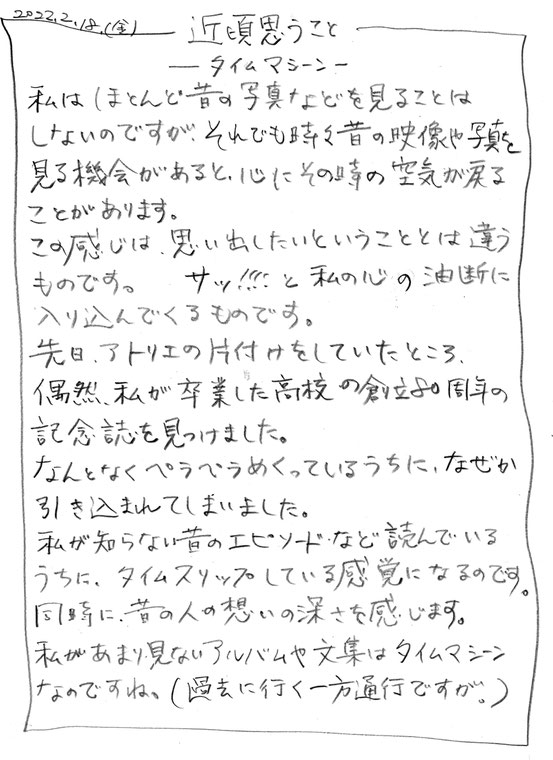 2022.2.18.(金)
近頃思うこと
―タイムマシーン―
私はほとんど昔の写真などを見ることは
しないのですが、それでも時々昔の映像や写真を
見る機会があると、心にその時の空気が戻る
ことがあります。
この感じは、思い出したいということとは違う
ものです。 サッ!!!!と私の心の油断に
入り込んでくるものです。
先日、アトリエの片付けをしていたところ、
偶然、私が卒業した高校の創立80周年の
記念誌を見つけました。
なんとなくペラペラめくっているうちに、なぜか
引き込まれてしまいました。
私が知らない昔のエピソードなど読んでいる
うちに、タイムスリップしている感覚になるのです。
同時に、昔の人の想いの深さを感じます。
私があまり見ないアルバムや文集はタイムマシーン
なのですね。(過去に行く一方通行ですが。)